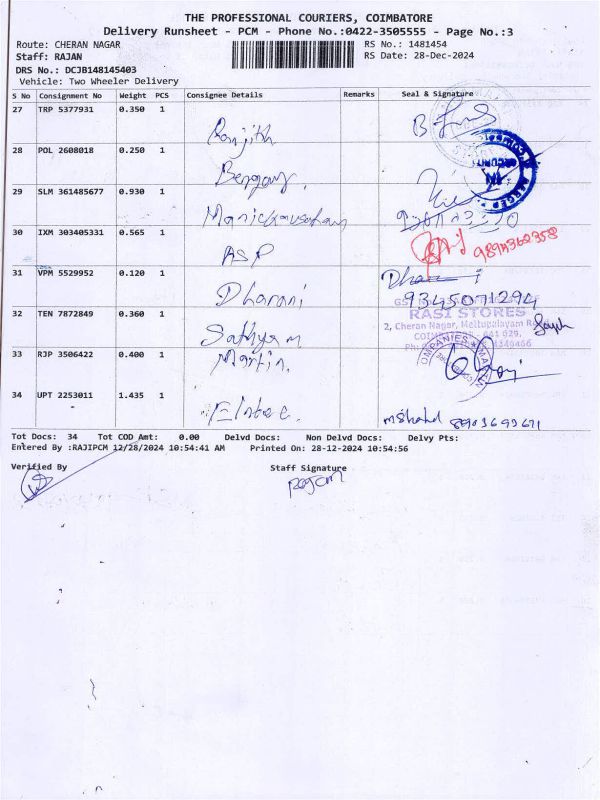 THE PROFESSIONAL COURIERS, COIMBATORE
Delivery Runsheet - PCM - Phone No.:0422-3505555 - Page No.:3
Route: CHERAN NAGAR
RS No.: 1481454
Staff: RAJAN
RS Date: 28-Dec-2024
DRS No.: DCJB148145403
Vehicle: Two Wheeler Delivery
S No Consignment No Weight PCS Consignee Details Remarks Seal & Signature
27 TRP 5377931 0.350 1
Ranjith
28 POL 2608018 0.250 1
29 SLM 361485677 0.930 1
30 IXM 303405331 0.565 1
ASP
9894362358
31 VPM 5529952 0.120 1
Dharani
9345071294
32 TEN 7872849 0.360 1
RASI STORES
2, Cheran Nagar, Mettupalayam
Sathya m
33 RJP 3506422 0.400 1
Martin.
34 UPT 2253011 1.435 1
8903693671
Tot Docs: 34 Tot COD Amt: 0.00 Delvd Docs: Non Delvd Docs: Delvy Pts:
Entered By :RAJIPCM 12/28/2024 10:54:41 AM Printed On: 28-12-2024 10:54:56
Verified By
Staff Signature